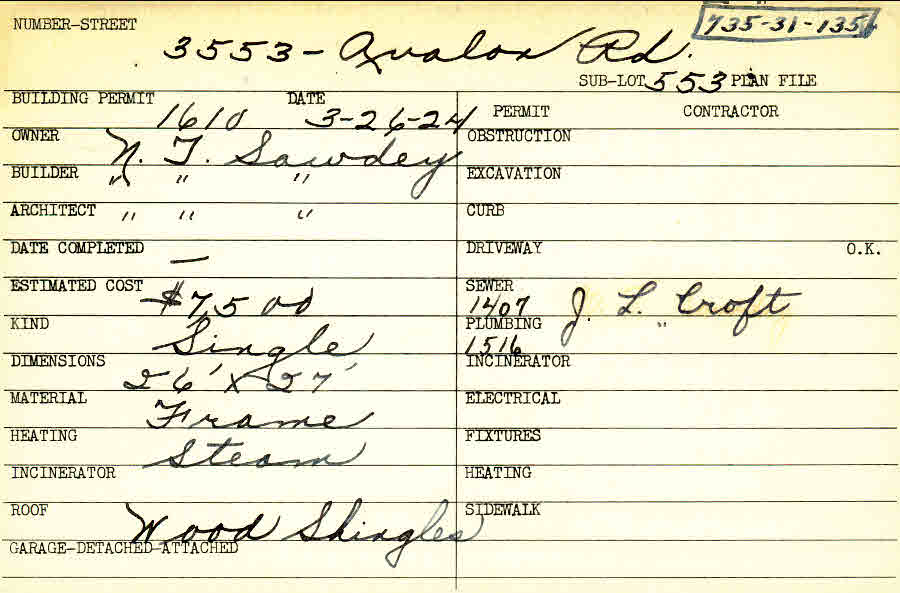 NUMBER-STREET 735-31-135
3553- Avalon Rd.
SUB-LOT 553 PLAN FILE
BUILDING PERMIT 1610 DATE 3-26-24
OWNER N. T. Sawdey
BUILDER " " "
ARCHITECT " " "
DATE COMPLETED —
ESTIMATED COST $7500
KIND Single
DIMENSIONS 26' X 27'
MATERIAL Frame
HEATING Steam
INCINERATOR
ROOF Wood Shingles
GARAGE-DETACHED-ATTACHED
PERMIT CONTRACTOR
OBSTRUCTION
EXCAVATION
CURB
DRIVEWAY O.K.
SEWER 1407 J. L. Croft
PLUMBING 1516 "
INCINERATOR
ELECTRICAL
FIXTURES
HEATING
SIDEWALK